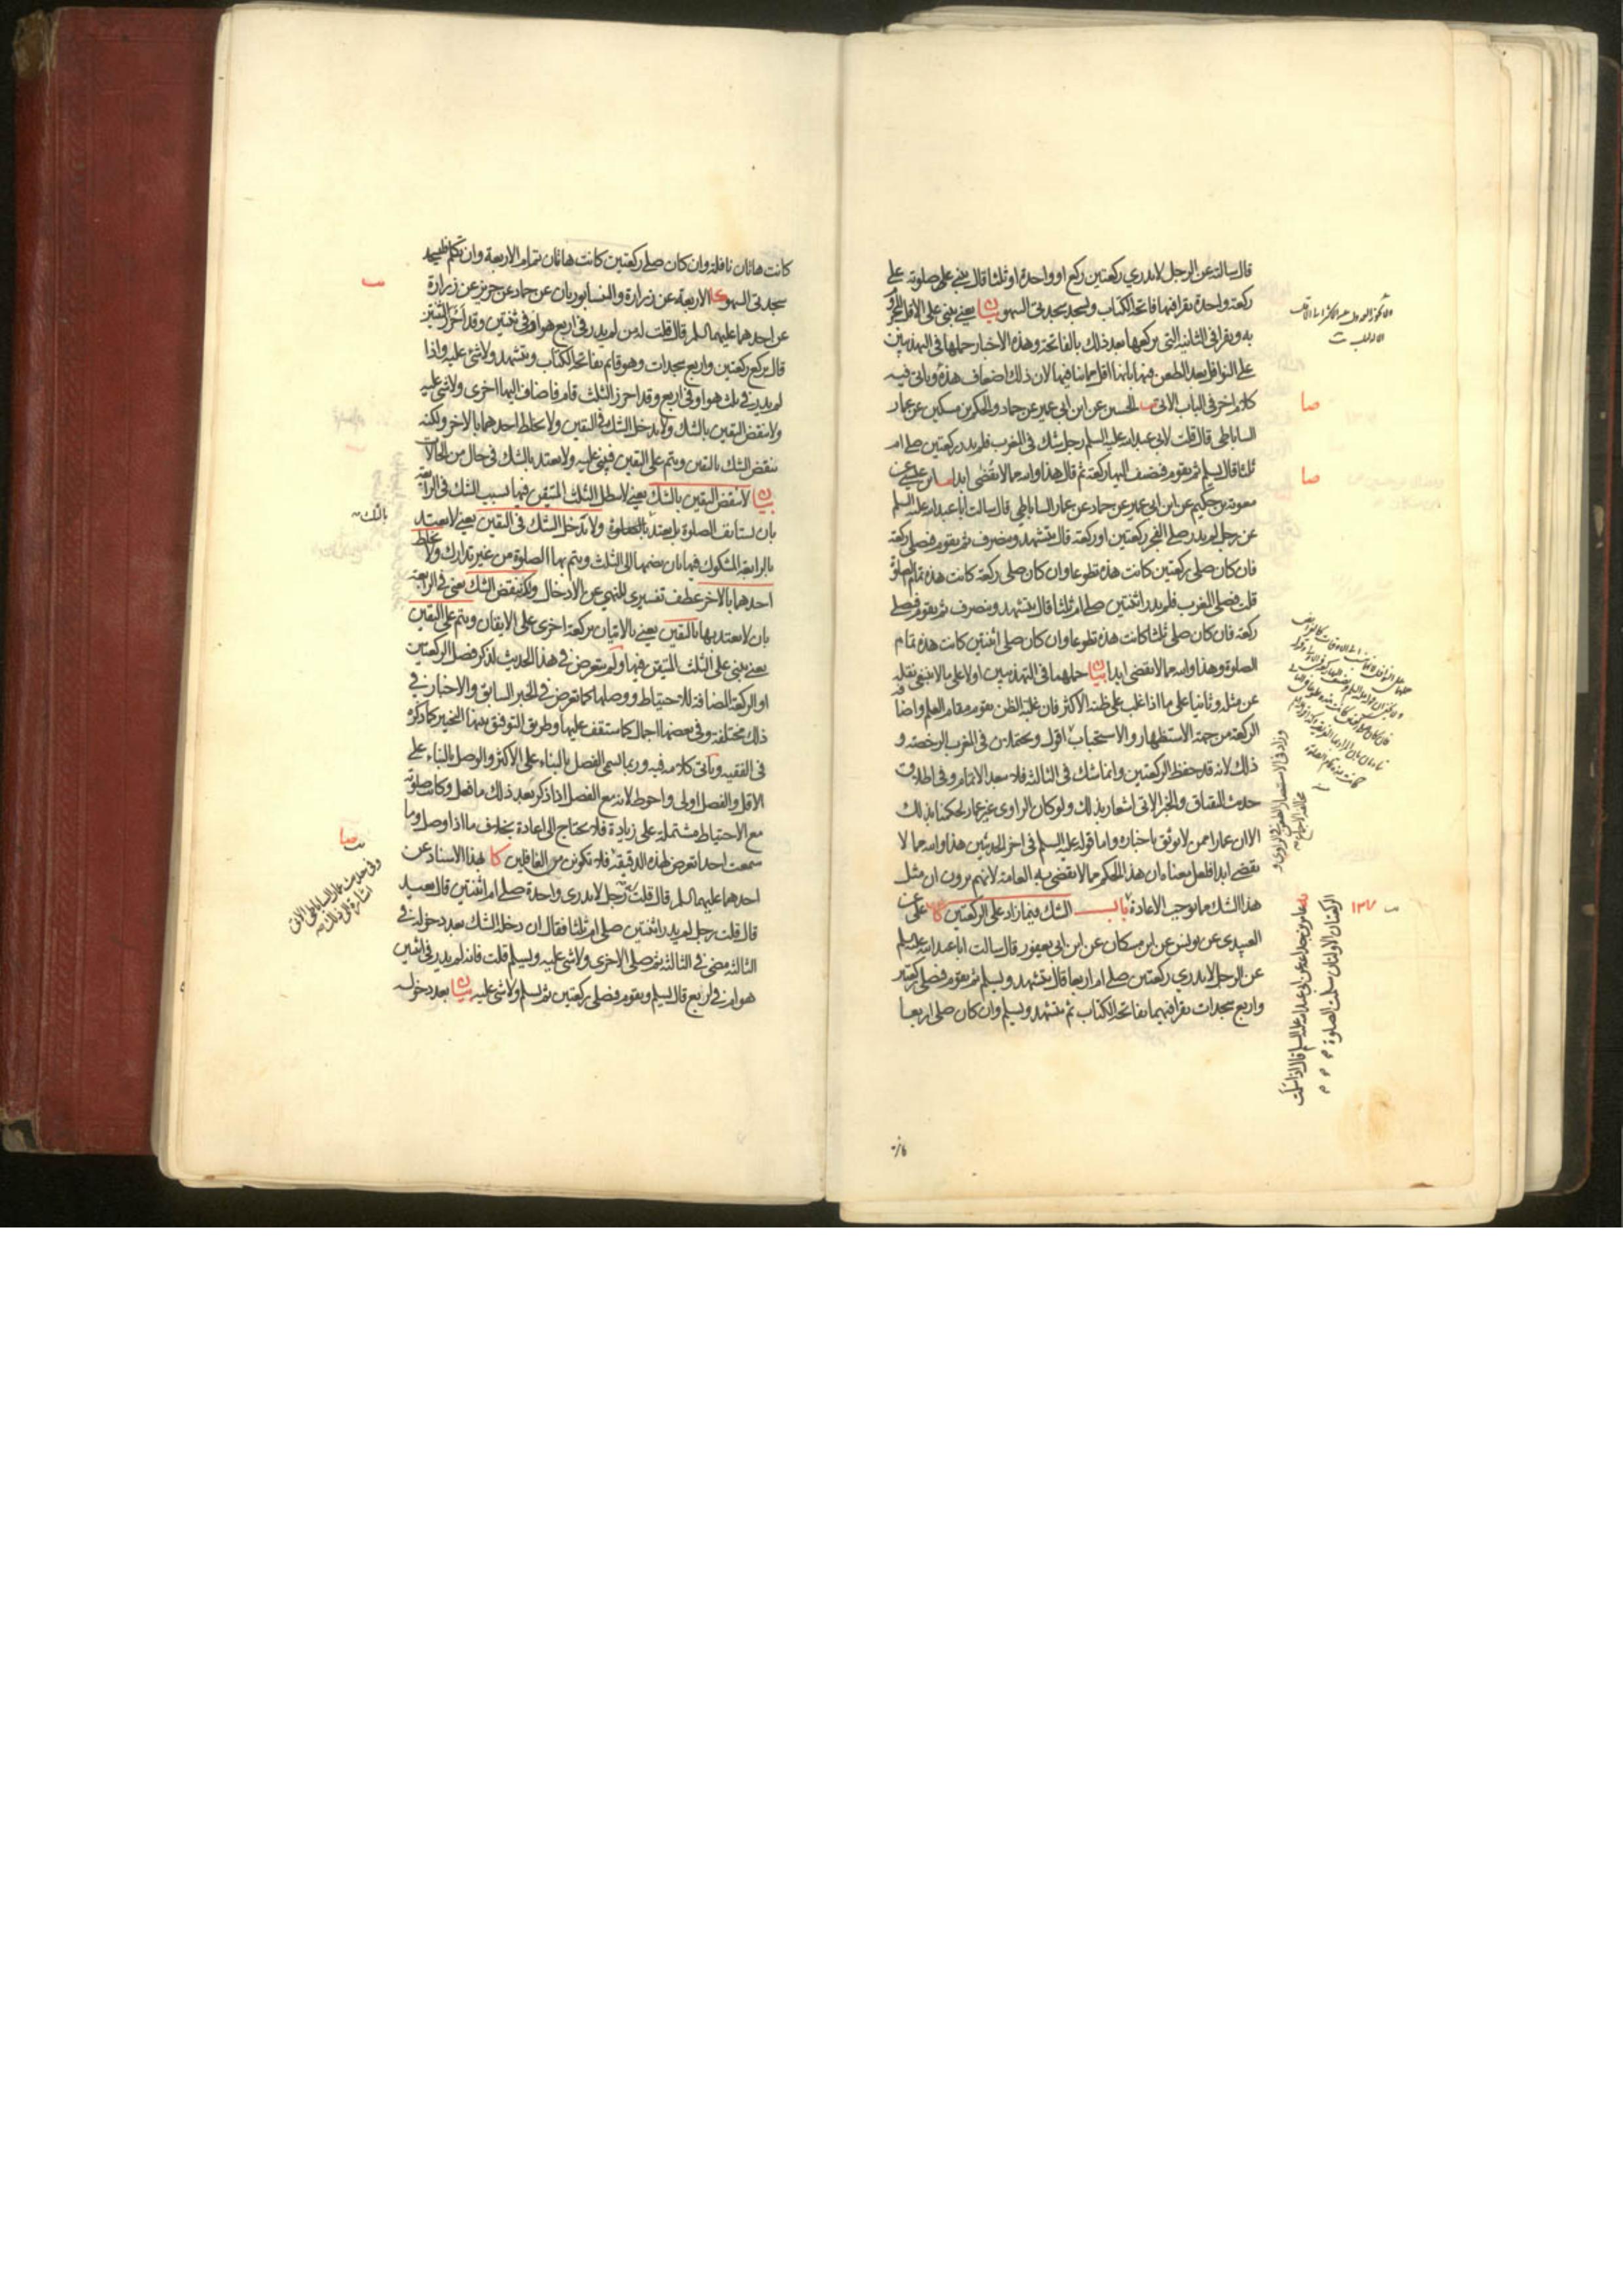 قال سالته عن الرجل لا يدري ركعتين ركع او واحدة او ثلثا قال يبني على صلوته على
ركعة واحدة يقرا فيها فاتحة الكتاب ويسجد سجدتي السهو بيان يعني يبني على الاقل
به ويقرا في الثانية التي يركعها بعد ذلك بالفاتحة وهذه الاخبار حملها في التهذيبين
على النوافل بعد الطعن فيها بانها اقل مما ينافيها لان ذلك اضعاف هذه وياتي فيه
كلام اخر في الباب الاتي يب الحسين عن ابن ابي عمير عن حماد والحكم بن مسكين عن عمار
الساباطي قال قلت لابي عبد الله عليه السلم رجل شك في المغرب فلم يدر ركعتين صلى ام
ثلثا قال يسلم ثم يقوم فيضيف اليها ركعة ثم قال هذا والله مما لا يقضى ابدا
معوية بن حكيم عن ابن ابي عمير عن حماد عن عمار الساباطي قال سالت ابا عبد الله عليه السلم
عن رجل لم يدر صلى الفجر ركعتين او ركعة قال يتشهد وينصرف ثم يقوم فيصلي ركعة
فان كان صلى ركعتين كانت هذه تطوعا وان كان صلى ركعة كانت هذه تمام الصلوة
قلت فصلى المغرب فلم يدر اثنتين صلى ام ثلثا قال يتشهد وينصرف ثم يقوم فيصلي
ركعة فان كان صلى ثلثا كانت هذه تطوعا وان كان صلى اثنتين كانت هذه تمام
الصلوة وهذا والله مما لا يقضى ابدا بيان حملهما في التهذيبين اولا على ما لا ينبغي نقله
عن مثله وثانيا على ما اذا غلب على ظنه الاكثر فان غلبة الظن يقوم مقام العلم واضافة
الركعة من جهة الاستظهار والاستحباب اقول ويحتملان في المغرب الرخصة و
ذلك لانه قد حفظ الركعتين وانما شك في الثالثة فلا يبعد الاتمام وفي اطلاق
حديث البقباق والخبر الاتي اشعار بذلك ولو كان الراوي غير عمار لحكمنا بذلك
الا ان عمارا ممن لا يوثق باخباره واما قوله عليه السلم في اخر الحديثين هذا والله مما لا
يقضى ابدا فلعل معناه ان هذا الحكم مما لا يقضي به العامة لانهم يرون ان مثل
هذا الشك مما يوجب الاعادة باب الشك فيما زاد على الركعتين كا علي عن
العبيدي عن يونس عن ابن مسكان عن ابن ابي يعفور قال سالت ابا عبد الله عليه السلم
عن الرجل لا يدري ركعتين صلى ام اربعا قال يتشهد ويسلم ثم يقوم فيصلي ركعتين
واربع سجدات يقرا فيهما بفاتحة الكتاب ثم يتشهد ويسلم وان كان صلى اربعا
صا
صا
١٣٧
وزاد في الاستبصار الطعن في الراوي و
مخالفة الاجماع
جماعة عن ابي عبد الله عليه السلم قال اذا سلمت
الركعتان الاولتان سلمت الصلوة
كانت هاتان نافلة وان كان صلى ركعتين كانت هاتان تمام الاربعة وان تكلم فليسجد
سجدتي السهو كا الاربعة عن زرارة والنيسابوريان عن حماد عن حريز عن زرارة
عن احدهما عليهما السلم قال قلت له من لم يدر في اربع هو او في ثنتين وقد احرز الثنتين
قال يركع ركعتين واربع سجدات وهو قائم بفاتحة الكتاب ويتشهد ولا شئ عليه واذا
لم يدر في ثلث هو او في اربع وقد احرز الثلث قام فاضاف اليها اخرى ولا شئ عليه
ولا ينقض اليقين بالشك ولا يدخل الشك في اليقين ولا يخلط احدهما بالاخر ولكنه
ينقض الشك باليقين ويتم على اليقين فيبني عليه ولا يعتد بالشك في حال من الحالات
بيان لا ينقض اليقين بالشك يعني لا يبطل الثلث المتيقن فيها بسبب الشك في الرابعة
بان يستانف الصلوة بل يعتد بالثلث ولا يدخل الشك في اليقين يعني لا يعتد
بالرابعة المشكوك فيها بان يضمها الى الثلث ويتم بها الصلوة من غير تدارك ولا يخلط
احدهما بالاخر عطف تفسيري للنهي عن الادخال ولكنه ينقض الشك يعني في الرابعة
بان لا يعتد بها باليقين يعني بالاتيان بركعة اخرى على الايقان ويتم على اليقين
يعني يبني على الثلث المتيقن فيها ولم يتعرض في هذا الحديث لذكر فصل الركعتين
او الركعة المضافة للاحتياط ووصلها كما تعرض في الخبر السابق والاخبار في
ذلك مختلفة وفي بعضها اجمال كما ستقف عليها وطريق التوفيق بينها التخيير كما ذكره
في الفقيه وياتي كلامه فيه وربما يسمى الفصل بالبناء على الاكثر والوصل بالبناء على
الاقل والفصل اولى واحوط لانه مع الفصل اذا ذكر بعد ذلك ما فعل وكانت صلوته
مع الاحتياط مشتملة على زيادة فلا يحتاج الى اعادة بخلاف ما اذا وصل وما
سمعت احدا تعرض لهذه الدقيقة فلا تكونن من الغافلين كا بهذا الاسناد عن
احدهما عليهما السلم قال قلت له رجل لا يدري واحدة صلى ام اثنتين قال يعيد
قال قلت رجل لم يدر اثنتين صلى ام ثلثا فقال ان دخله الشك بعد دخوله في
الثالثة مضى في الثالثة ثم صلى الاخرى ولا شئ عليه ويسلم قلت فانه لم يدر في اثنتين
هو ام في اربع قال يسلم ويقوم فيصلي ركعتين ثم يسلم ولا شئ عليه بيان بعد دخوله
يب
بالثلث
صا
وفي حديث عمار الساباطي الاتي
اشارة الى ذلك منه